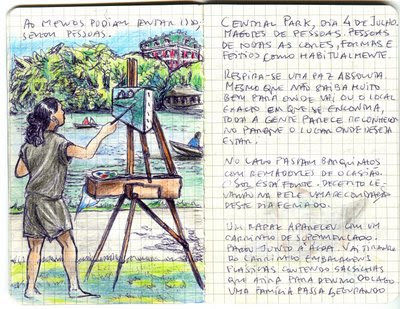 AO MENOS PODIAM TENTAR ISSO,
SEREM PESSOAS.
CENTRAL PARK, DIA 4 DE JULHO.
MAGOTES DE PESSOAS. PESSOAS
DE TODAS AS CORES, FORMAS E
FEITIO COMO HABITUALMENTE.
RESPIRA-SE UMA PAZ ABSOLUTA.
MESMO QUE NÃO SAIBA MUITO
BEM PARA ONDE VAI OU O LOCAL
EXACTO EM QUE SE ENCONTRA,
TODA A GENTE PARECE RECONHECER
NO PARQUE O LUGAR ONDE DESEJA
ESTAR.
NO LAGO PASSAM BARQUINHOS
COM REMADORES DE OCASIÃO.
O SOL ESTÁ FORTE. DECERTO LE-
VARÃO NA PELE UMA RECORDAÇÃO
DESTE DIA FERIADO.
UM RAPAZ APARECEU COM UM
CARRINHO DE SUPERMERCADO.
PAROU JUNTO À ÁGUA. VAI TIRANDO
DO CARRINHO EMBALAGENS
PLÁSTICAS CONTENDO SALSICHAS
QUE ATIRA PARA DENTRO DO LAGO.
UMA FAMÍLIA PASSA SEGURANDO